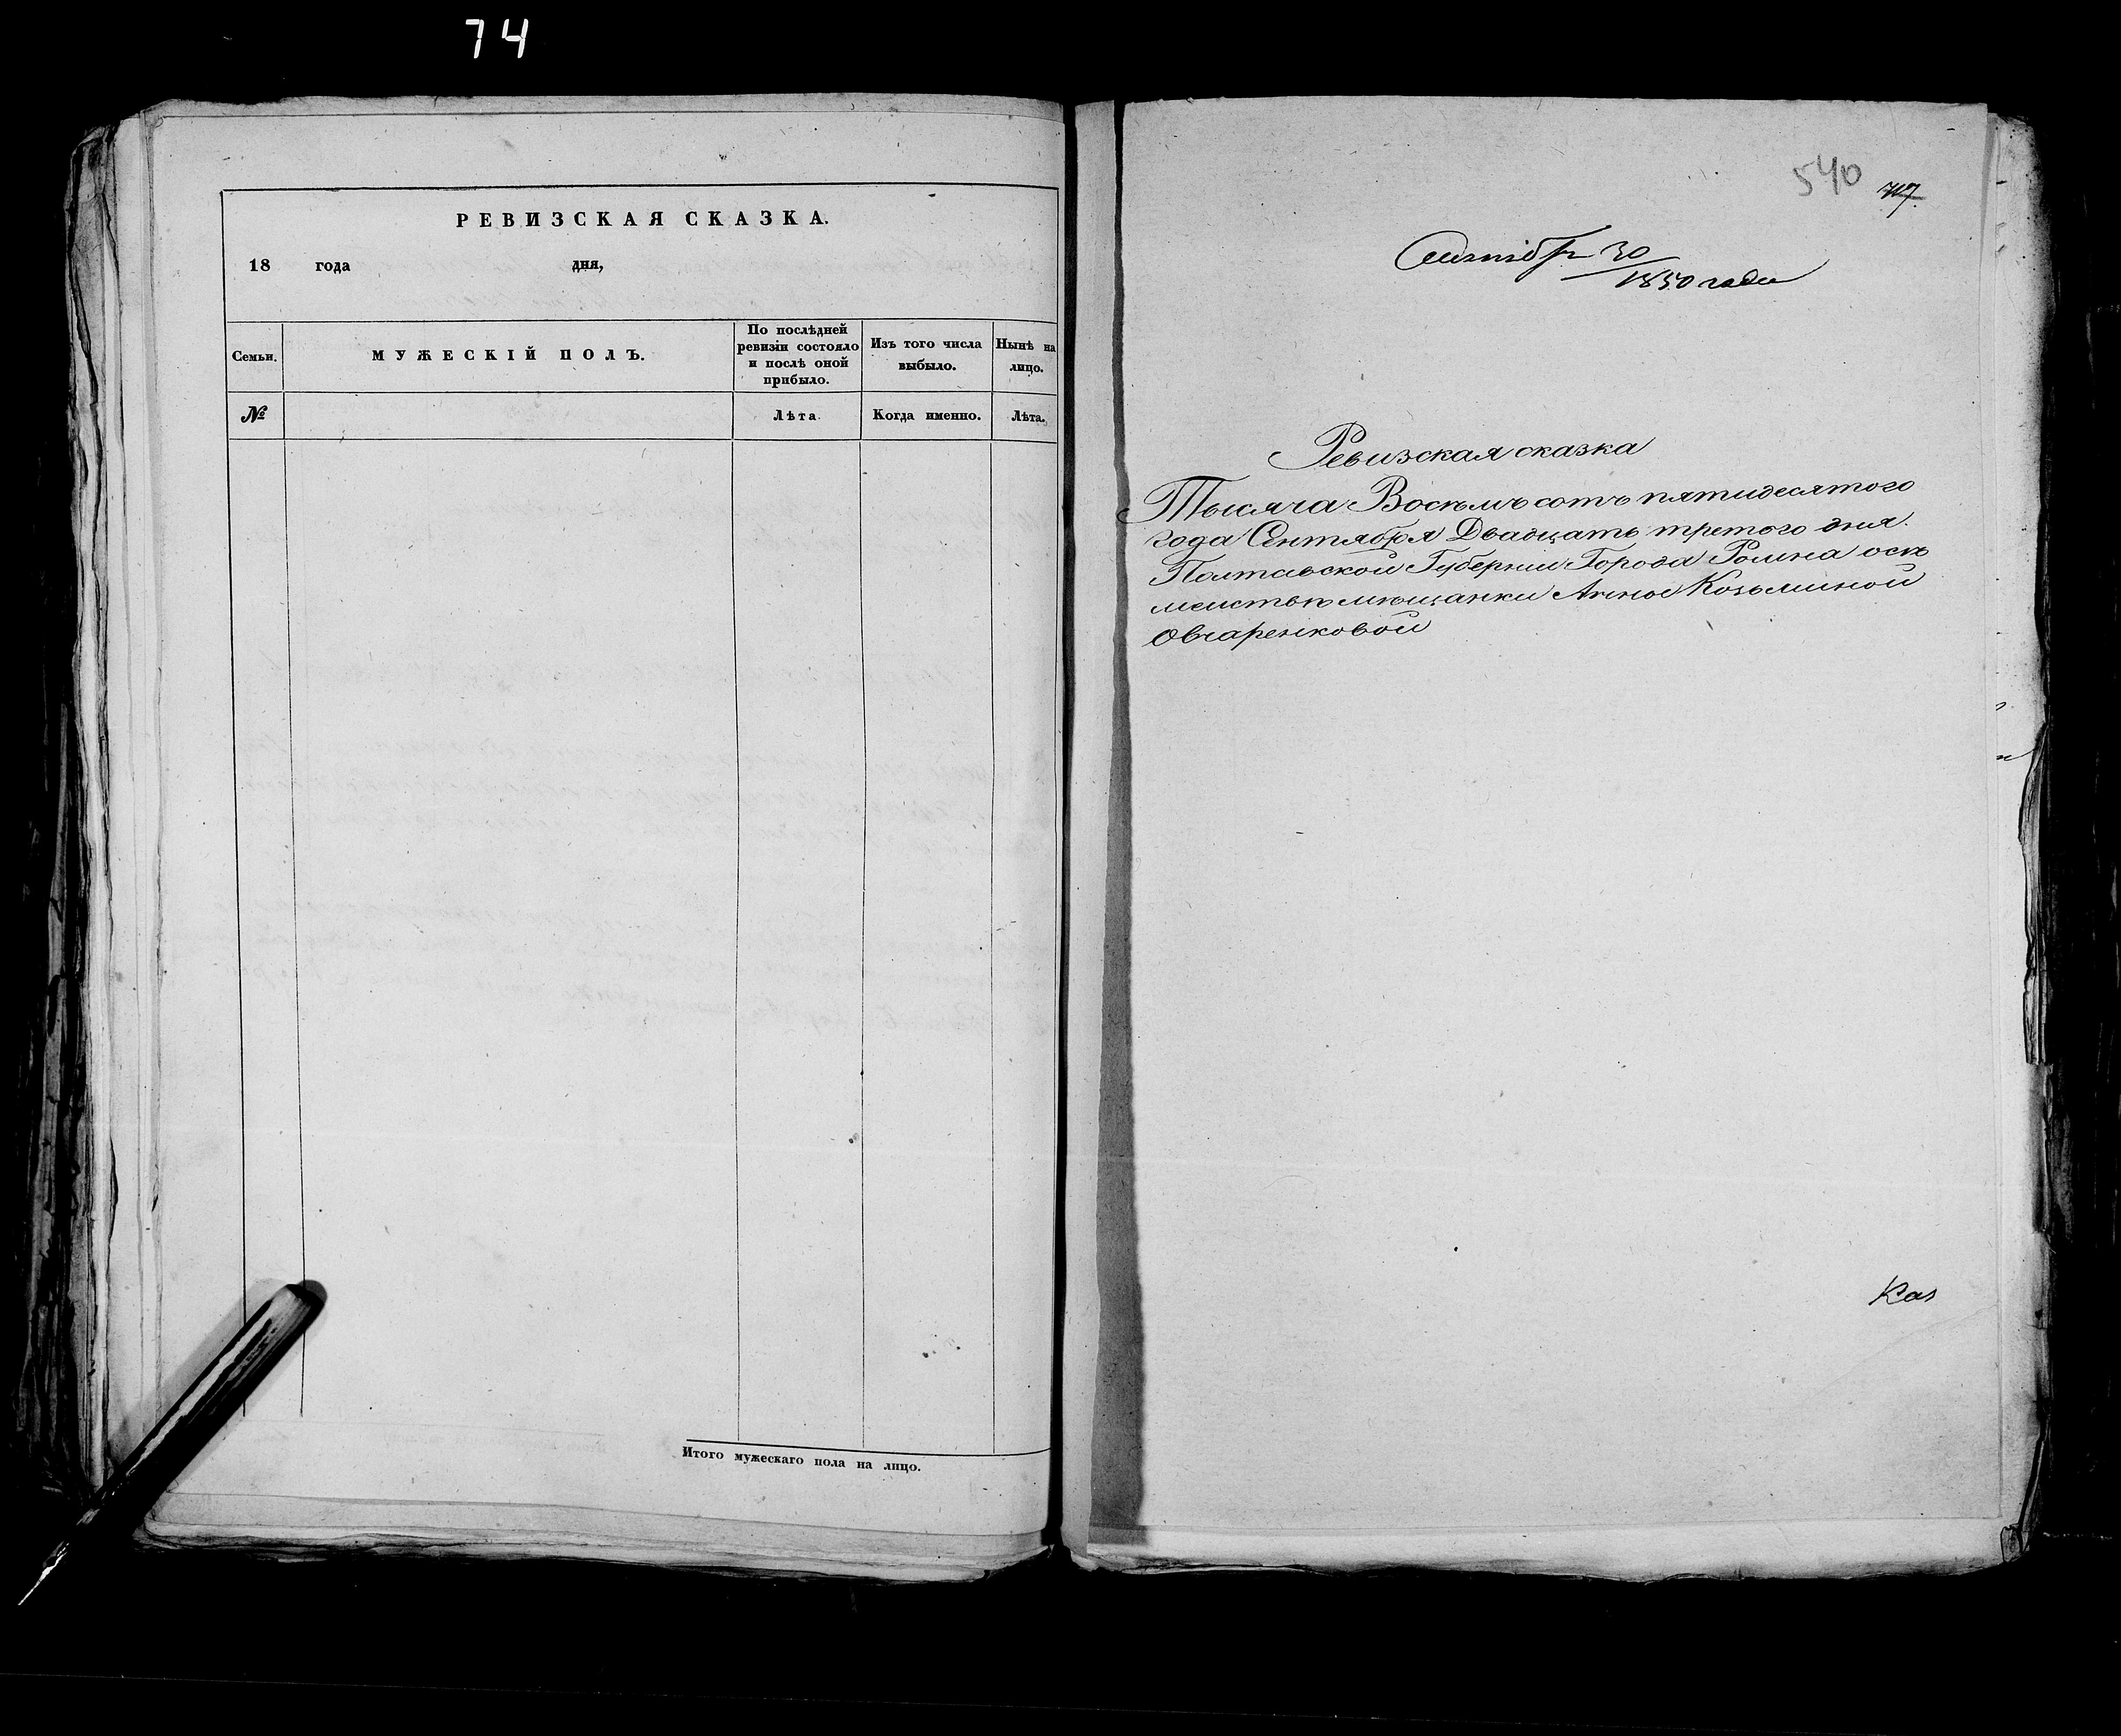 74
РЕВИЗСКАЯ СКАЗКА.
18 года дня,
Семьи.
МУЖЕСКІЙ ПОЛЪ.
По послѣдней
ревизіи состояло
и послѣ оной
прибыло.
Изъ того числа
выбыло.
Нынѣ на
лицо.
№
Лѣта
Когда именно.
Лѣта.
Итого мужескаго пола на лицо.
540
30
1850 года
Ревизская сказка
Тысяча Восѣмъ сотъ пятидесятого
года Сентября Двадцать третого дня
Полтавской Губерніи Города Ромна осѣ
меиствѣ мѣщанки Анной Козьминой
Овчаренковой